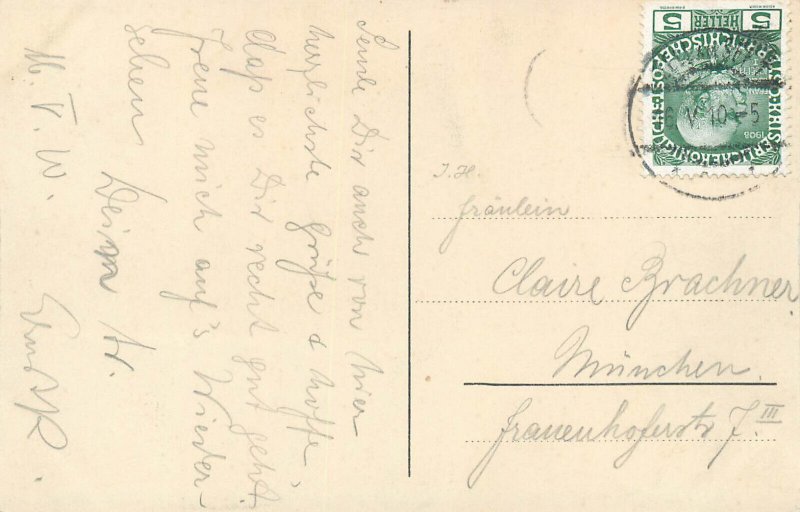 Sende Dir auch von hier
herzlichste Grüße & hoffe
daß es Dir recht gut geht
Freue mich auf's Wieder-
sehen
Dein
W. V. W.
I. H.
Fräulein
Claire Brachner
München.
Frauenhoferstr 7. III
5 HELLER 5
KAISERLICHE KÖNIGLICHE ÖSTERREICHISCHE POST
1908
6 V 10 -5